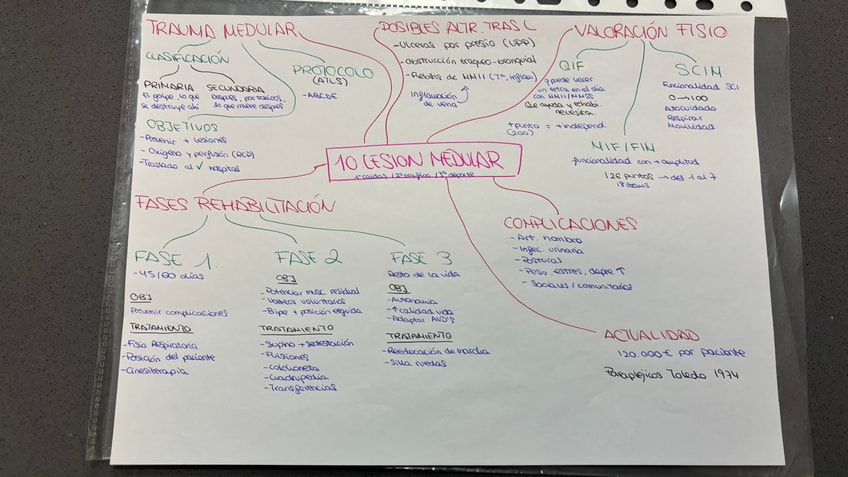 TRAUMA MEDULAR
CLASIFICACIÓN
PRIMARIA
El golpe, lo que
se destruye ahí
SECUNDARIA
Después, por tóxicos,
lo que muere después
PROTOCOLO
(ATLS)
- ABCDE
OBJETIVOS
- Prevenir + lesiones
- Oxígeno y perfusión (RCP)
- Traslado al ✓ hospital
POSIBLES ALTR. TRAS L
- Ulceras por presio (UPP)
- Obstrucción traqueo-bronquial
- Flebitis de MMII (Tº, inflam)
Inflamación
de vena
VALORACIÓN FISIO
QIF
q puede hacer
un tetra en el día
con MMII/MMSS
Qe ayuda y rehabi.
necesitra.
+ punto = + independ
(200)
SCIM
Funcionalidad SCI
0 → 100
Autocuidado
Respirar
Movilidad
MIF/FIM
funcionalidad con + amplitud
126 puntos → del 1 al 7
18 items
10 LESION MEDULAR
1º caídas / 2º tráfico / 3º deporte
FASES REHABILITACIÓN
FASE 1
- 45/60 días
OBJ
Prevenir complicaciones
TRATAMIENTO
- Fisio Respiratoria
- Posición del paciente
- Cinesiterapia
FASE 2
OBJ
- Potenciar musc. residual
- Bipe + posición erguida
TRATAMIENTO
- Supino + sedestación
- Pulsiones
- Colchoneta
- Cuadrupedia
- Transferencias
FASE 3
Resto de la vida
OBJ
- Autonomía
- ↑ calidad vida
- Adaptar AVD'S
TRATAMIENTO
- Reeducación de marcha
- Silla ruedas
COMPLICACIONES
- Art. hombro
- Infec. urinaria
- Postural
- Peso, estres, depre ↑
- Sociales / comunitarias
ACTUALIDAD
120.000€ por paciente
Parapléjicos Toledo 1974